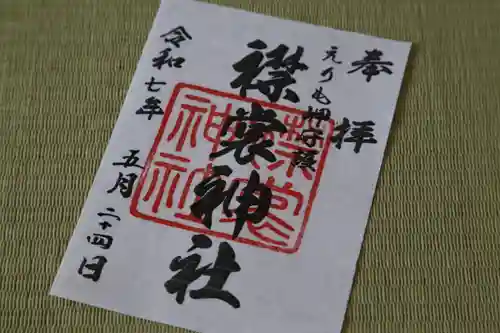 奉拝
えりも岬守護
襟裳神社
令和七年
五月二十四日